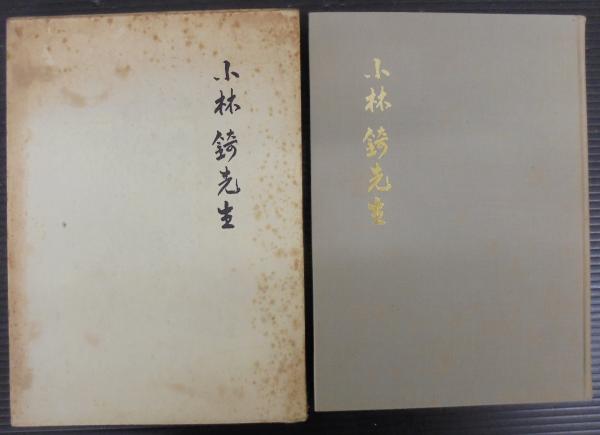 小林錡先生
小林錡先生